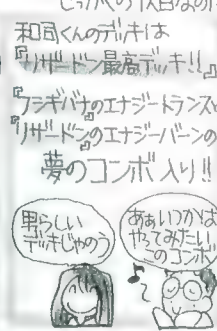 せっかくの休日なの
和司くんのデッキは
『リザードン最高デッキ!!』
『フシギバナのエナジートランス
『リザードンのエナジーバーンの
夢のコンボ入り!!
男らしい
デッキじゃのう
ああいつかは
やってみたい
このコンボ